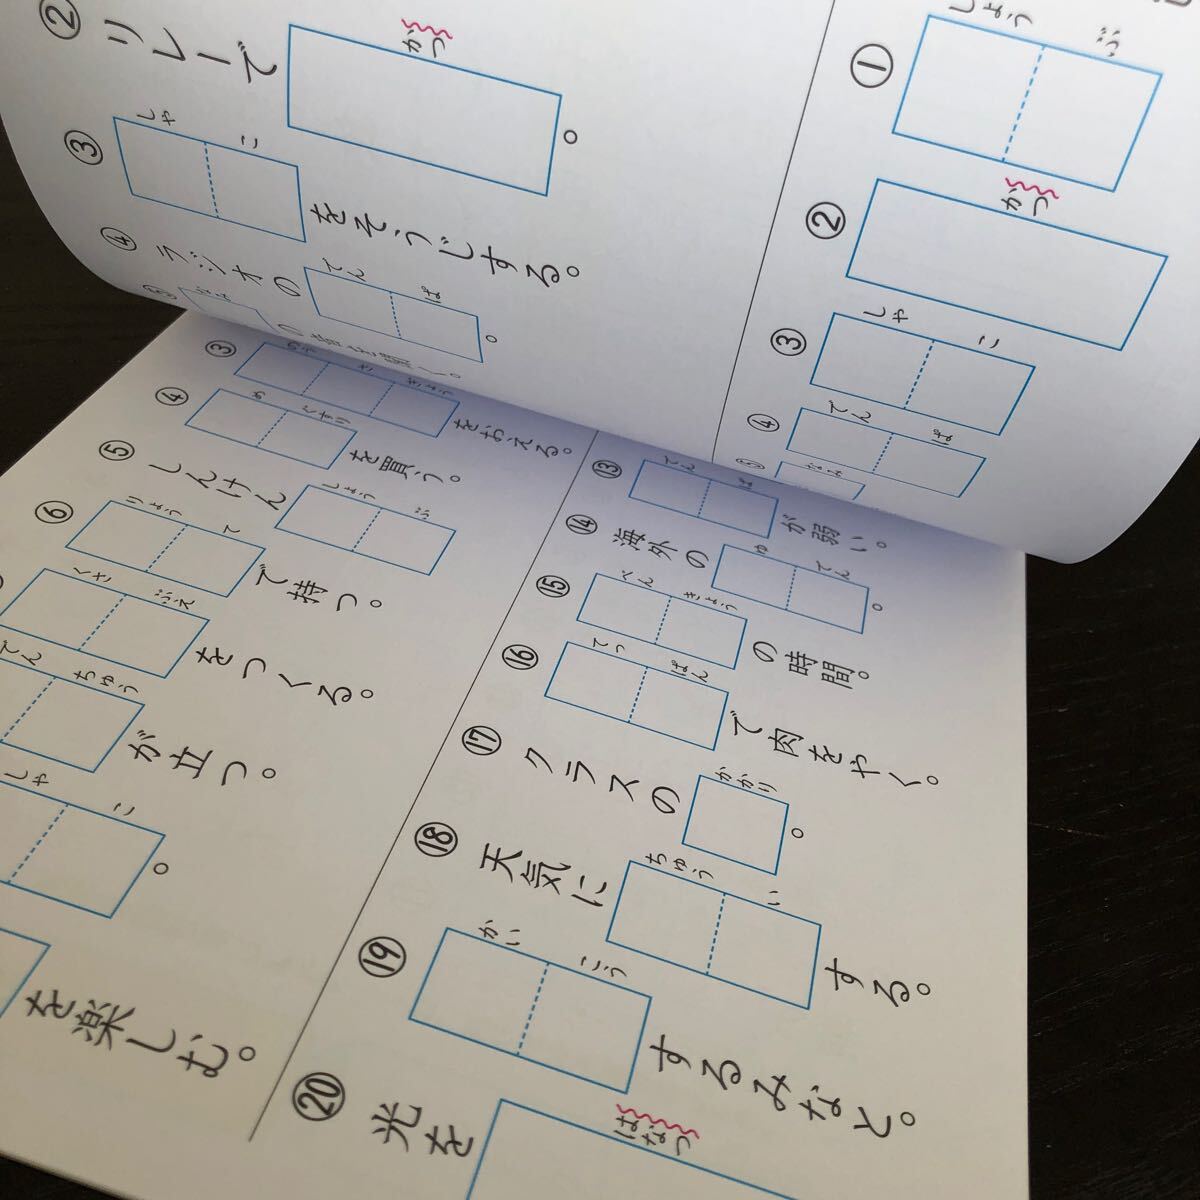 ② リレーで がつ 。
③ しゃ こ をそうじする。
④ ラジオの でん ぱ 。
① しょう ぶ
② がつ
③ しゃ こ
④ でん ぱ
③ さ ぎょう をおえる。
④ め ぐすり を買う。
⑤ しんけん しょう ぶ
⑥ りょう て で持つ。
くさ ぶえ をつくる。
でん ちゅう が立つ。
しゃ こ 。
を楽しむ。
⑬ でん ぱ が弱い。
⑭ 海外の ゆ でん 。
⑮ べん きょう の時間。
⑯ てっ ぱん で肉をやく。
⑰ クラスの かかり 。
⑱ 天気に ちゅう い する。
⑲ かい こう するみなと。
⑳ 光を はなつ